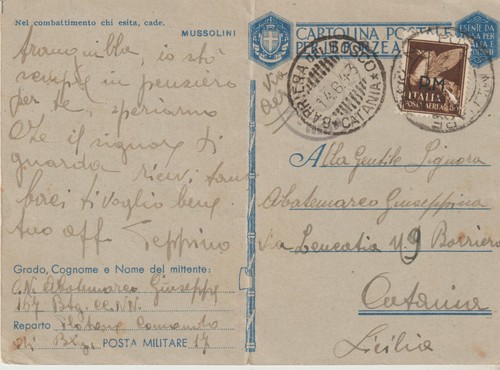 Nel combattimento chi esita, cade.
MUSSOLINI
tranquilla io stò
sempre in pensiero
per te speriamo
Che il signore ti
guarda ricevi tanti
baci ti voglio bene
tuo aff Peppino
Grado, Cognome e Nome del mittente:
C.N. Abatemarco Giuseppe
167 Btg. CC.NN.
Reparto Plotone Comando
di Btg. POSTA MILITARE 17
CARTOLINA POSTALE
PER LE FORZE A
ESENTE DA
PER LA
Via
BARRIERA DEL BOSCO
14.6.43
CATANIA
P.M.
ITALIA
POSTA AEREA
Alla Gentile Signora
Abatemarco Giuseppina
Via Leucatia N 9 Barriera
Catania
Sicilia